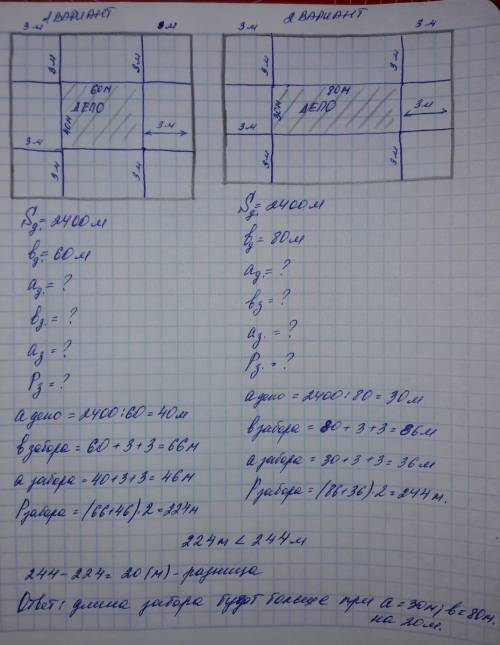 1 ВАРИАНТ
3 м 3 м
3 м 3 м
60м
ДЕПО
40м
3 м
3 м 3 м
3 м
Sд. = 2400 м
вд. = 60 м
ад. = ?
вз. = ?
аз = ?
Рз = ?
а депо = 2400 : 60 = 40 м
в забора = 60 + 3 + 3 = 66 м
а забора = 40 + 3 + 3 = 46 м
Р забора = (66+46)·2 = 224 м
2 ВАРИАНТ
3 м 3 м
3 м 3 м
80м
ДЕПО
30м
3 м
3 м 3 м
3 м
Sд. = 2400 м
вд = 80 м
ад. = ?
вз = ?
аз. = ?
Рз. = ?
а депо = 2400 : 80 = 30 м
в забора = 80 + 3 + 3 = 86 м
а забора = 30 + 3 + 3 = 36 м
Р забора = (86+36)·2 = 244 м.
224 м < 244 м
244 - 224 = 20 (м) - разница
Ответ: длина забора будет больше при а = 30 м, в = 80 м.
на 20 м.